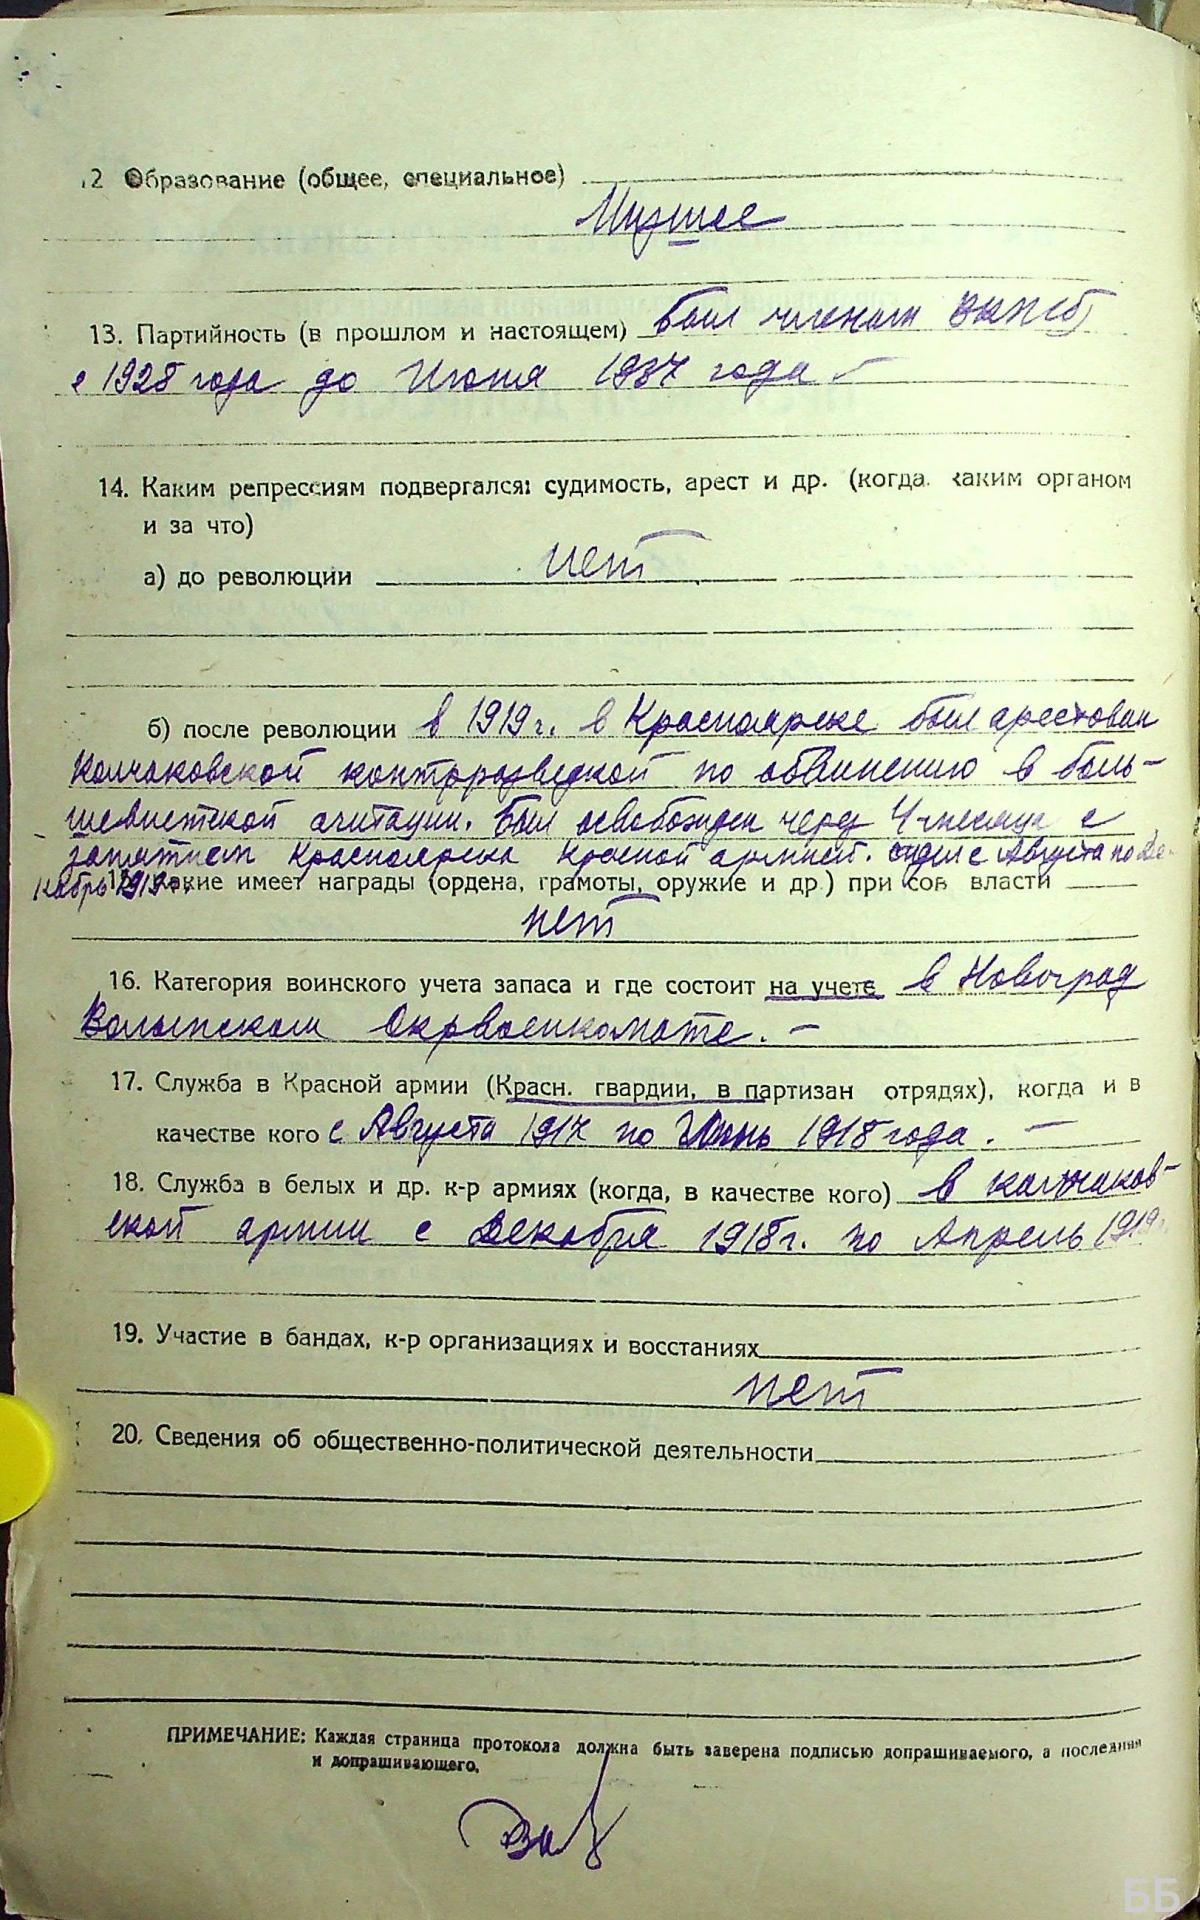 12 Образование (общее, специальное)
Низшее
13. Партийность (в прошлом и настоящем) был членом ВКП(б)
с 1928 года до Июня 1937 года —
14. Каким репрессиям подвергался: судимость, арест и др. (когда. каким органом
и за что)
а) до революции нет
б) после революции в 1919 г. в Красноярске был арестован
Колчаковской контрразведкой по обвинению в боль-
шевистской агитации. Был освобожден через 4 месяца с
занятием Красноярска Красной армией. сидел с Августа по Де-
кабрь 1919 г.
15. Какие имеет награды (ордена, грамоты, оружие и др.) при сов власти
нет
16. Категория воинского учета запаса и где состоит на учете в Новоград
Волынском Окрвоенкомате. —
17. Служба в Красной армии (Красн. гвардии, в партизан отрядях), когда и в
качестве кого с Августа 1917 по Июнь 1918 года. —
18. Служба в белых и др. к-р армиях (когда, в качестве кого) в колчаков-
ской армии с Декабря 1918 г. по Апрель 1919 г.
19. Участие в бандах, к-р организациях и восстаниях
нет
20. Сведения об общественно-политической деятельности
ПРИМЕЧАНИЕ: Каждая страница протокола должна быть заверена подписью допрашиваемого, а последняя
и допрашивающего.
ББ